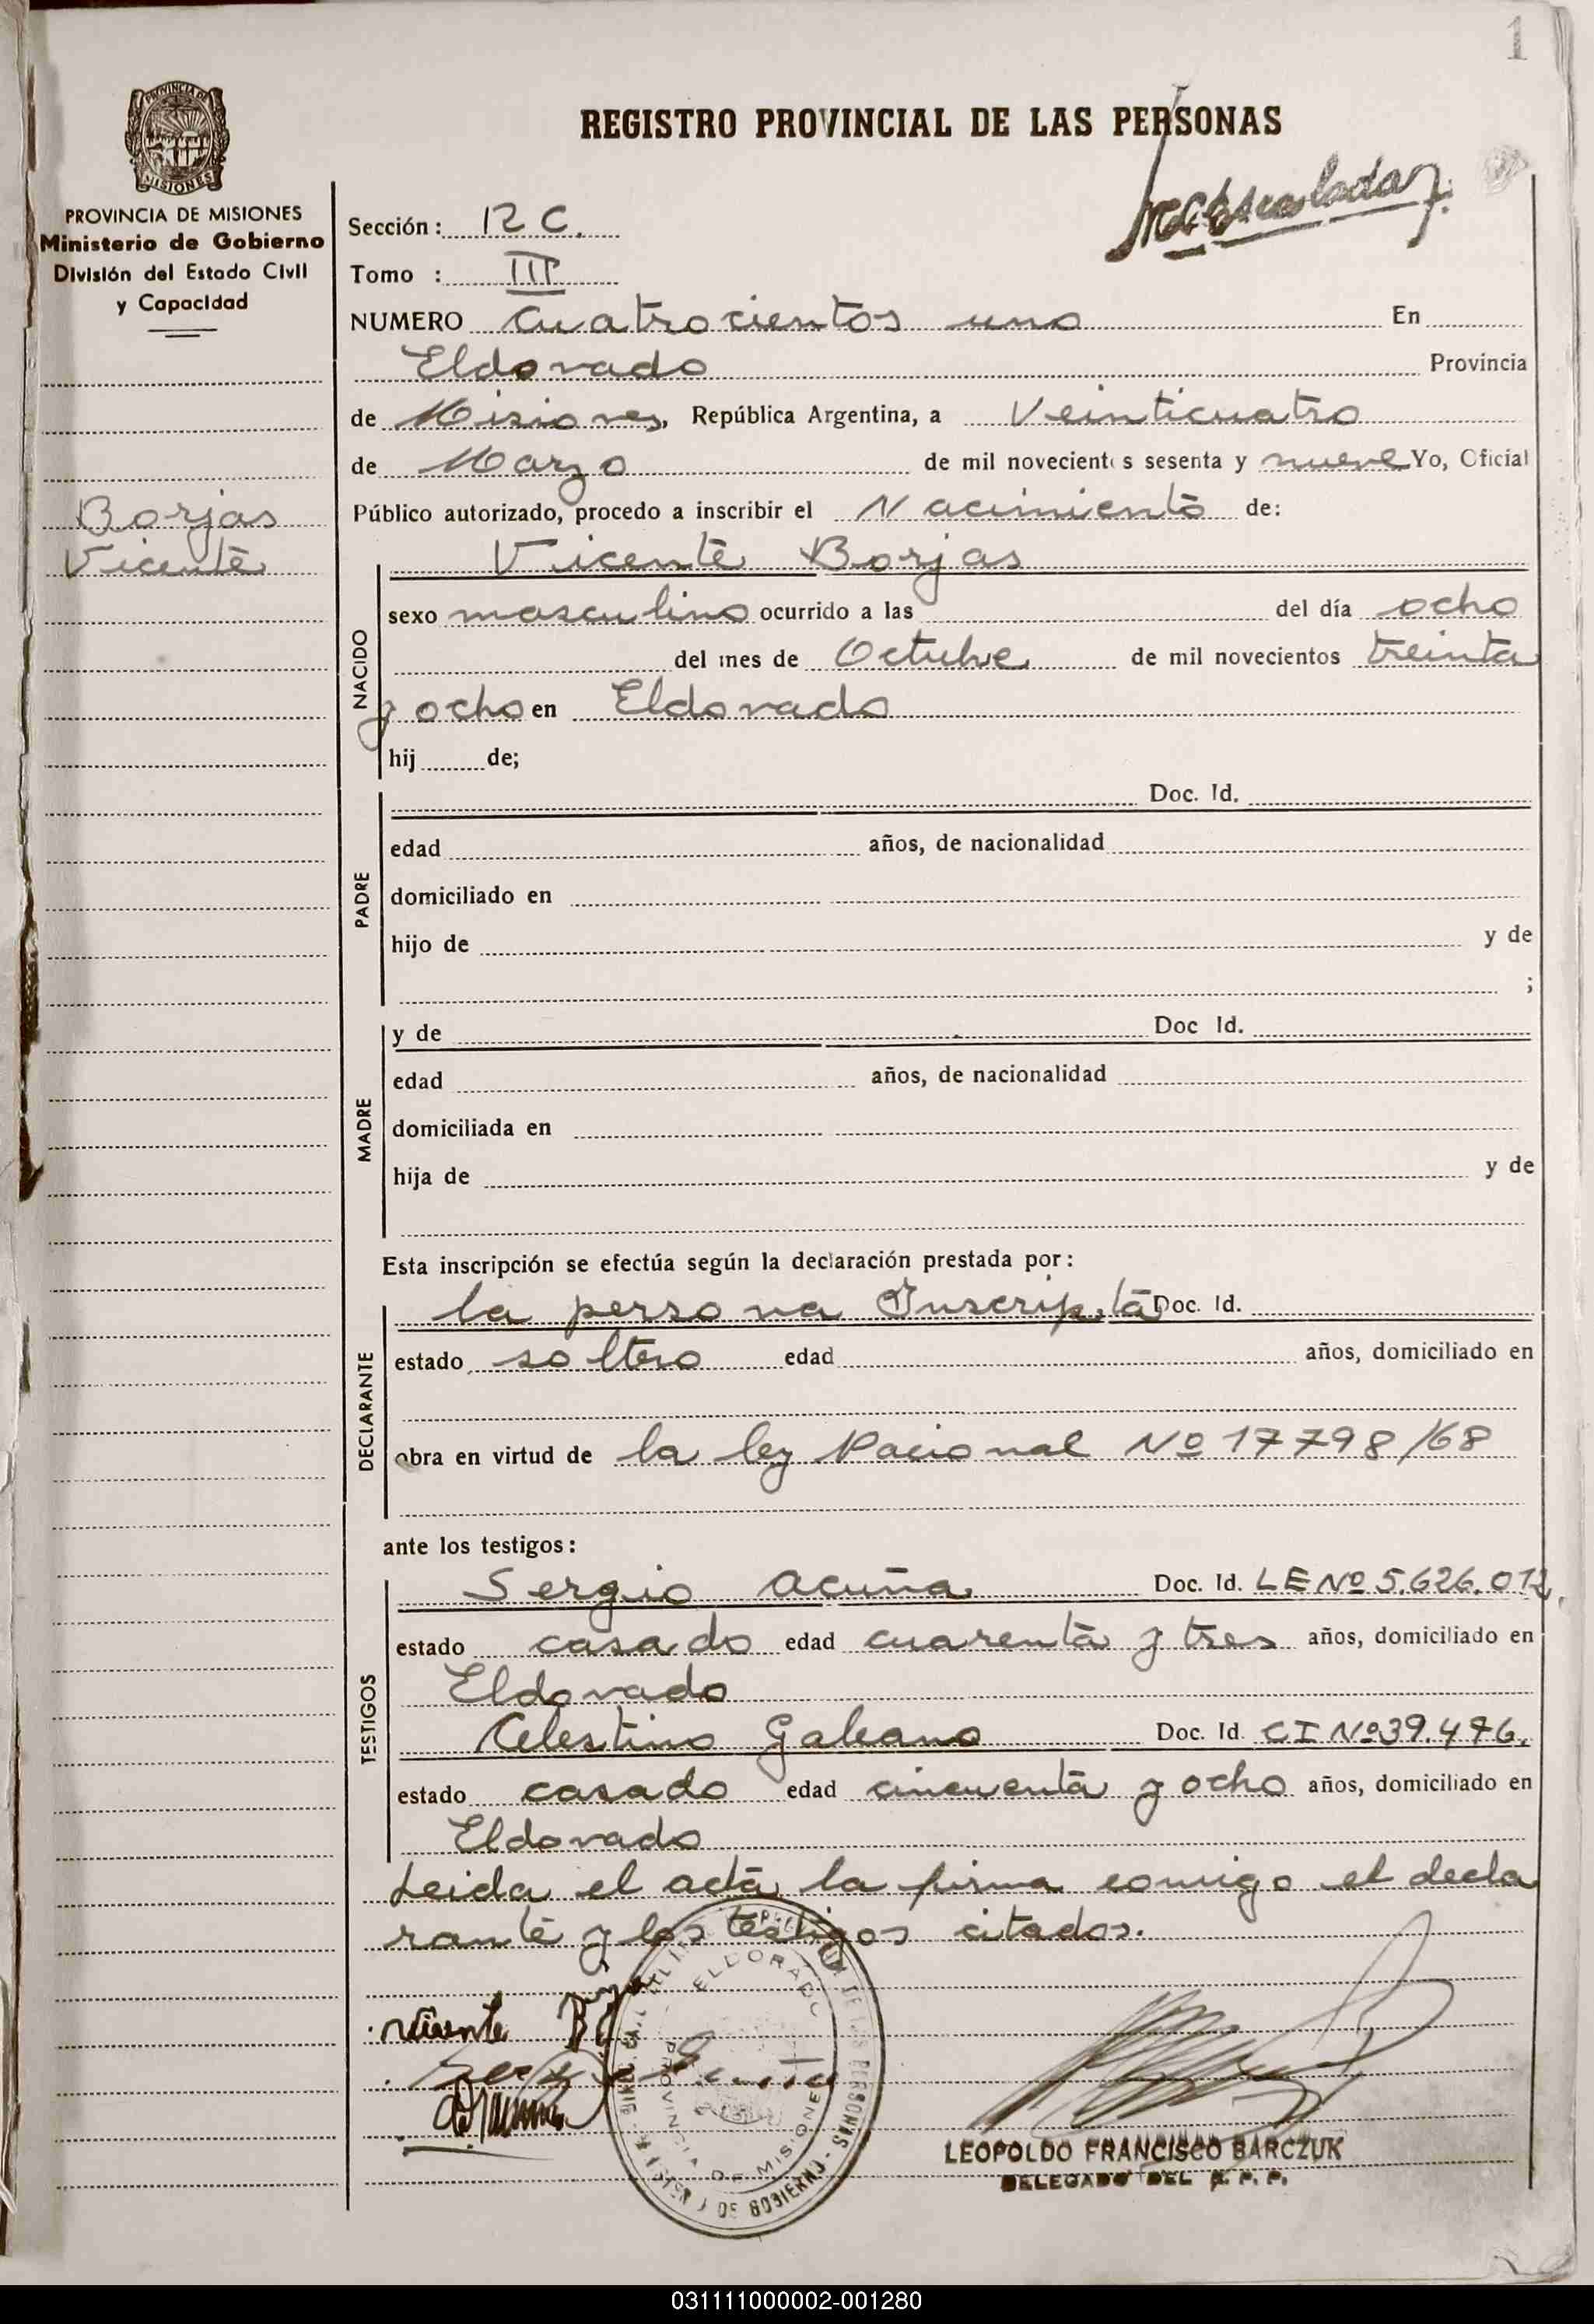 1
REGISTRO PROVINCIAL DE LAS PERSONAS
PROVINCIA DE
MISIONES
PROVINCIA DE MISIONES
Ministerio de Gobierno
División del Estado Civil
y Capacidad
Borjas
Vicente
Sección: R C.
Tomo : III
NUMERO Cuatrocientos uno En
Eldorado Provincia
de Misiones, República Argentina, a Veinticuatro
de Marzo de mil novecientos sesenta y nueve Yo, Oficial
Público autorizado, procedo a inscribir el Nacimiento de:
Vicente Borjas
NACIDO
sexo masculino ocurrido a las del día ocho
del mes de Octubre de mil novecientos treinta
y ocho en Eldorado
hij de;
PADRE
Doc. Id.
edad años, de nacionalidad
domiciliado en
hijo de y de
;
MADRE
y de Doc Id.
edad años, de nacionalidad
domiciliada en
hija de y de
Esta inscripción se efectúa según la declaración prestada por:
DECLARANTE
la persona Inscripta Doc. Id.
estado soltero edad años, domiciliado en
obra en virtud de la ley Nacional Nº 17798/68
ante los testigos:
TESTIGOS
Sergio Acuña Doc. Id. LE Nº 5.626.012,
estado casado edad cuarenta y tres años, domiciliado en
Eldorado
Celestino Galeano Doc. Id. CI Nº 39.476.
estado casado edad cincuenta y ocho años, domiciliado en
Eldorado
Leida el acta la firma conmigo el decla
rante y los testigos citados.
Vicente
ELDORADO
PROVINCIA DE MISIONES
DE LAS PERSONAS
DE GOBIERNO
LEOPOLDO FRANCISCO BARCZUK
DELEGADO DEL R. P. P.
031111000002-001280